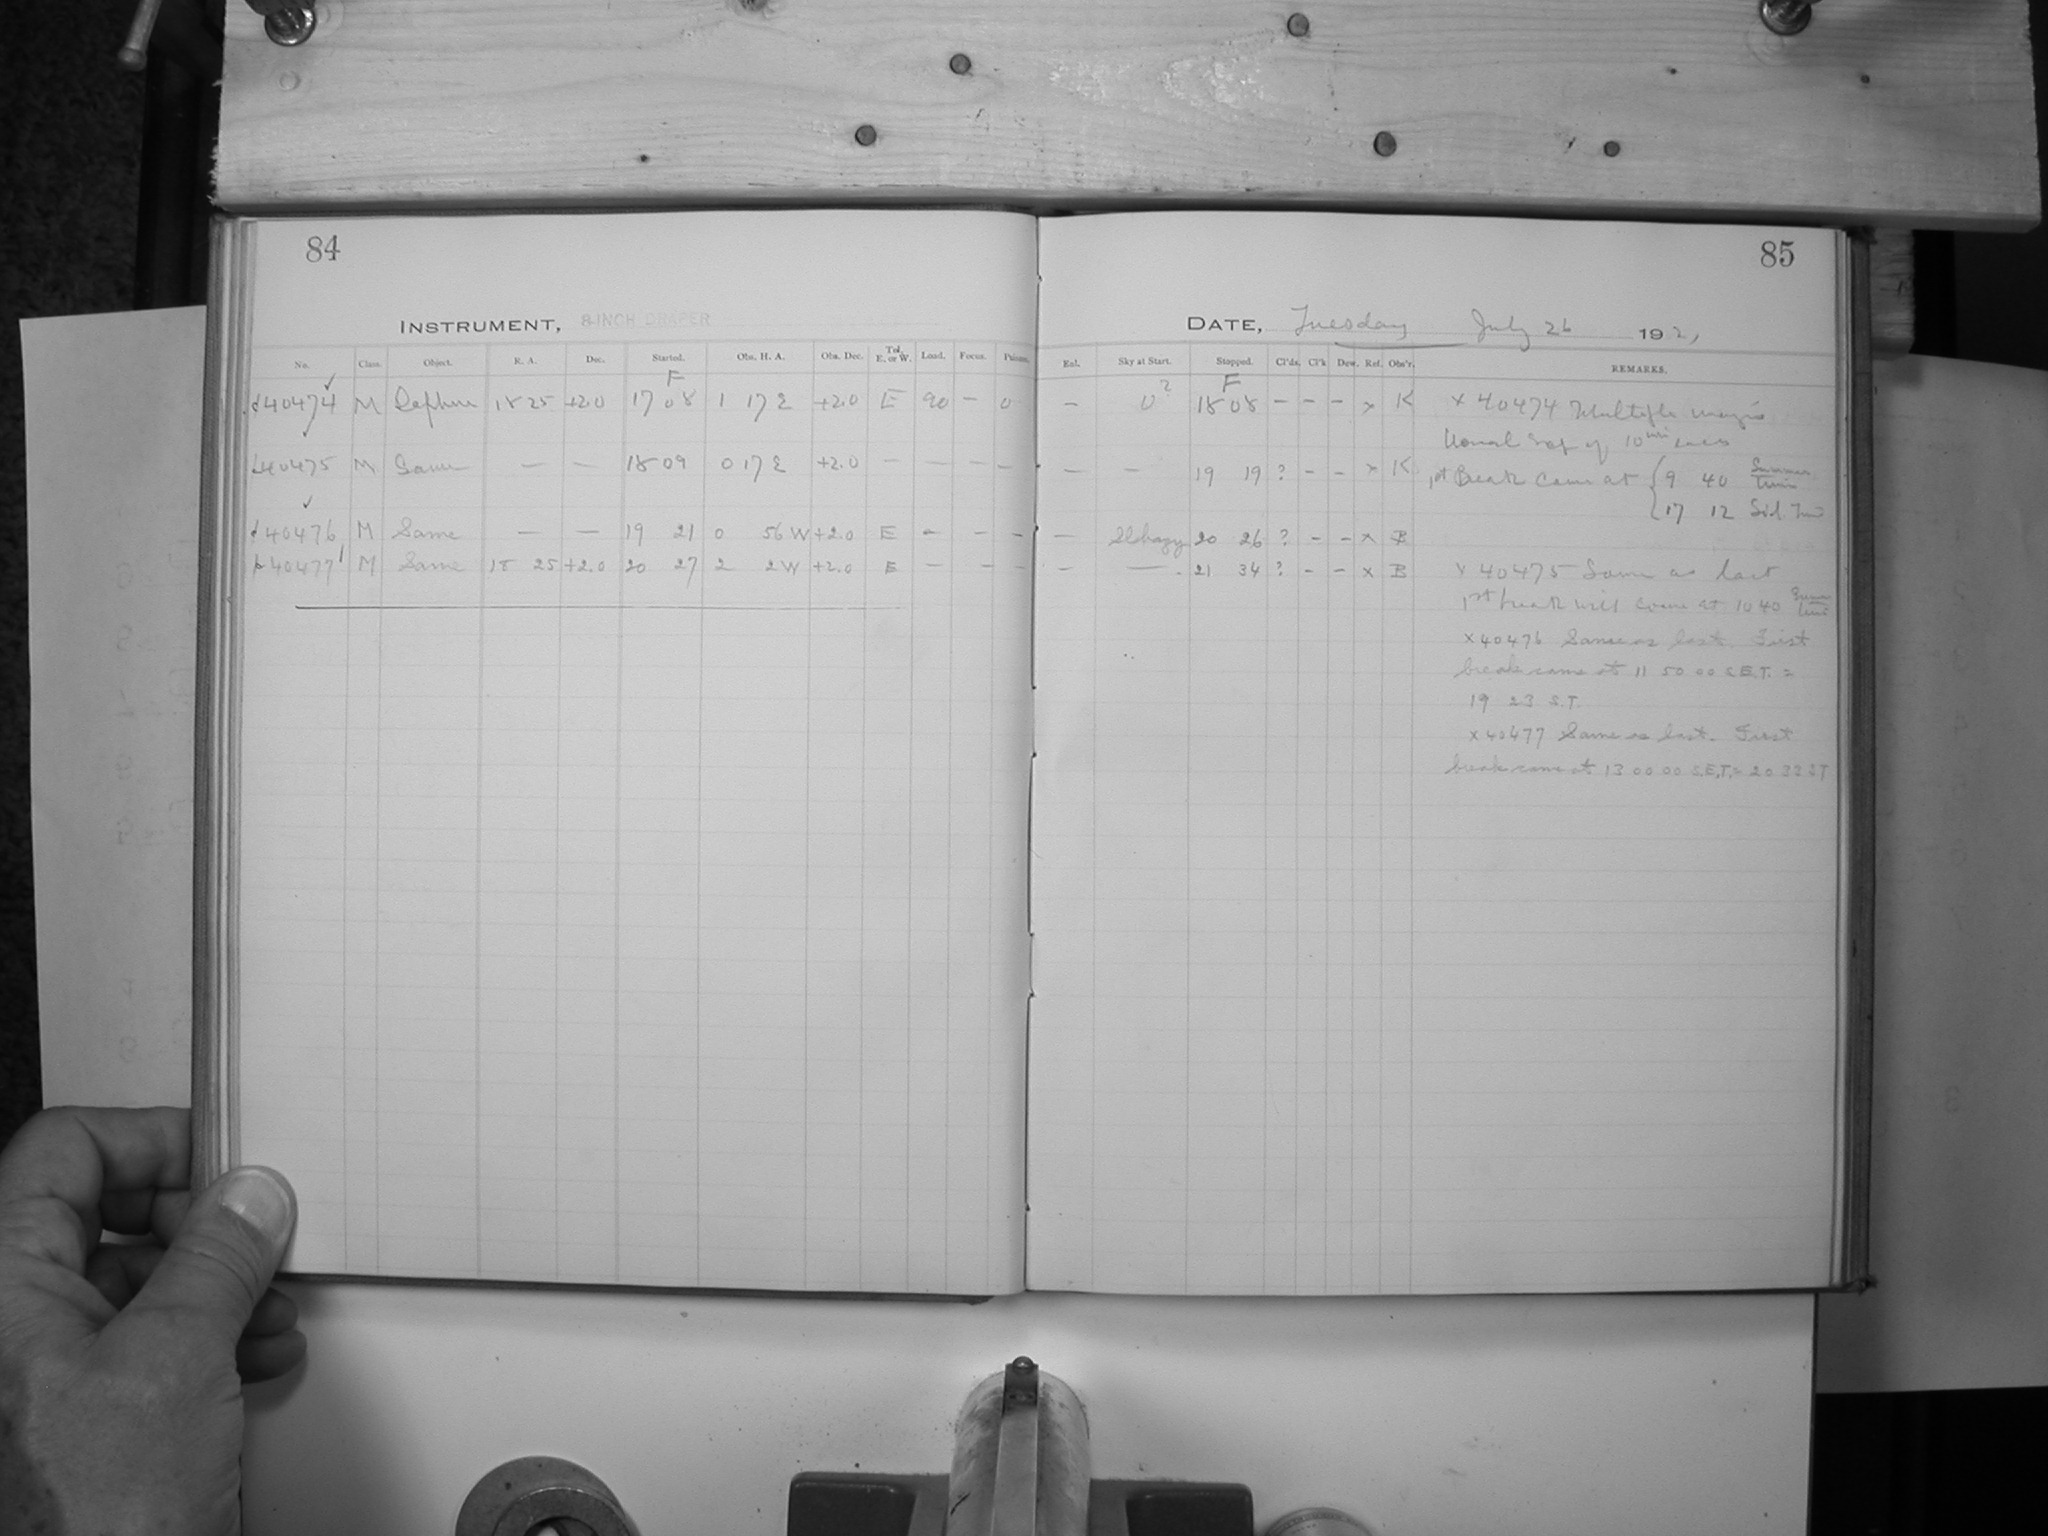 84
INSTRUMENT, 8-INCH DRAPER
No. Class. Object. R. A. Dec. Started. Obs. H. A. Obs. Dec. Tel. E. or W. Load. Focus.
F
d40474 M 18 25 +2.0 17 08 1 17 E +2.0 E 90 - 0
d40475 M Same — — 18 09 0 17 E +2.0 — — — —
d40476 M Same — — 19 21 0 56 W +2.0 E - - -
40477 M Same 18 25 +2.0 20 27 2 2W +2.0 E - - -
85
DATE, Tuesday July 26 1921
Enl. Sky at Start. Stopped. Cl'ds. Cl'k Dew. Ref. Obs'r. REMARKS.
F
— 0? 18 08 - - - x K x 40474 Multiple
Usual of 10 min
— — 19 19 ? - - x K 1st Break came at { 9 40 Summer Time
17 12 Sid.
— Sl hazy 20 26 ? - - x B
— — 21 34 ? - - x B x 40475 Same as last
1st break will come at 10 40 Time
x 40476 Same as last. First
break came at 11 50 00 S.E.T. =
19 23 S.T.
x 40477 Same as last. First
break came at 13 00 00 S.E.T. = 20 33 ST